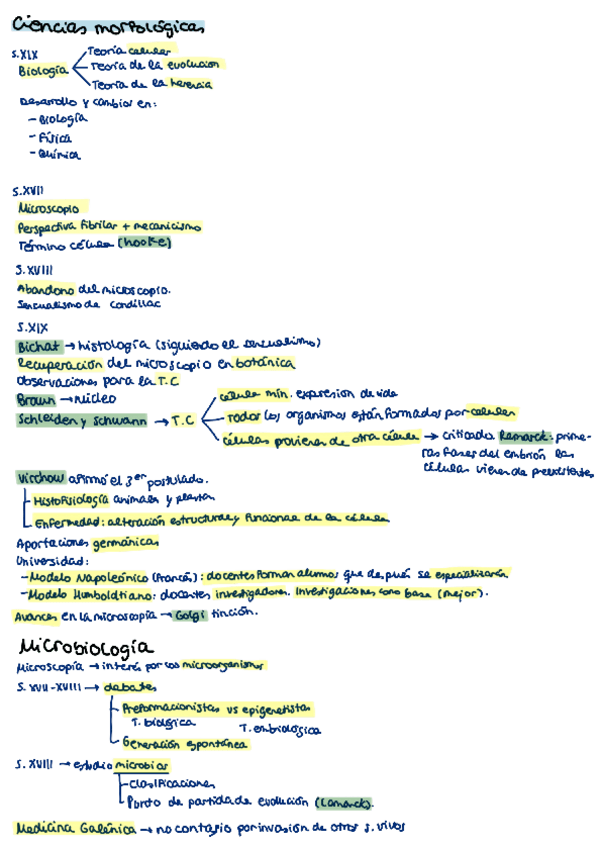 Ciencias morfológicas
S.XIX
Biología
Teoría celular
Teoría de la evolución
Teoría de la herencia
Desarrollo y cambios en:
- Biología
- Física
- Química
S.XVII
Microscopio
Perspectiva fibrilar + mecanicismo
Término célula (hooke)
S.XVIII
Abandono del microscopio.
Sensualismo de Condillac
S.XIX
Bichat → histología (siguiendo el sensualismo)
Recuperación del microscopio en botánica
Observaciones para la T.C
Brown → núcleo
Schleiden y Schwann → T.C
célula mín. expresión de vida
todos los organismos están formados por células
células proviene de otra célula → criticado. Remarck: prime-
ras fases del embrión las
células vienen de preexistentes
Virchow afirmó el 3er postulado.
Histofisiología animales y plantas
Enfermedad: alteración estructural y funcional de la célula
Aportaciones germánicas
Universidad:
- Modelo Napoleónico (Francés): docentes forman alumnos que después se especializarán.
- Modelo Humboldtiano: docentes investigadores. Investigaciones como base (mejor).
Avances en la microscopía → Golgi tinción.
Microbiología
Microscopía → interés por los microorganismos
S. XVII-XVIII → debates
Preformacionistas vs epigenetistas
T. biológica T. embiológica
Generación espontánea
S. XVIII → estudio microbios
Clasificaciones
Punto de partida de evolución (Lamarck).
Medicina Galénica → no contagio por invasión de otros s. vivos